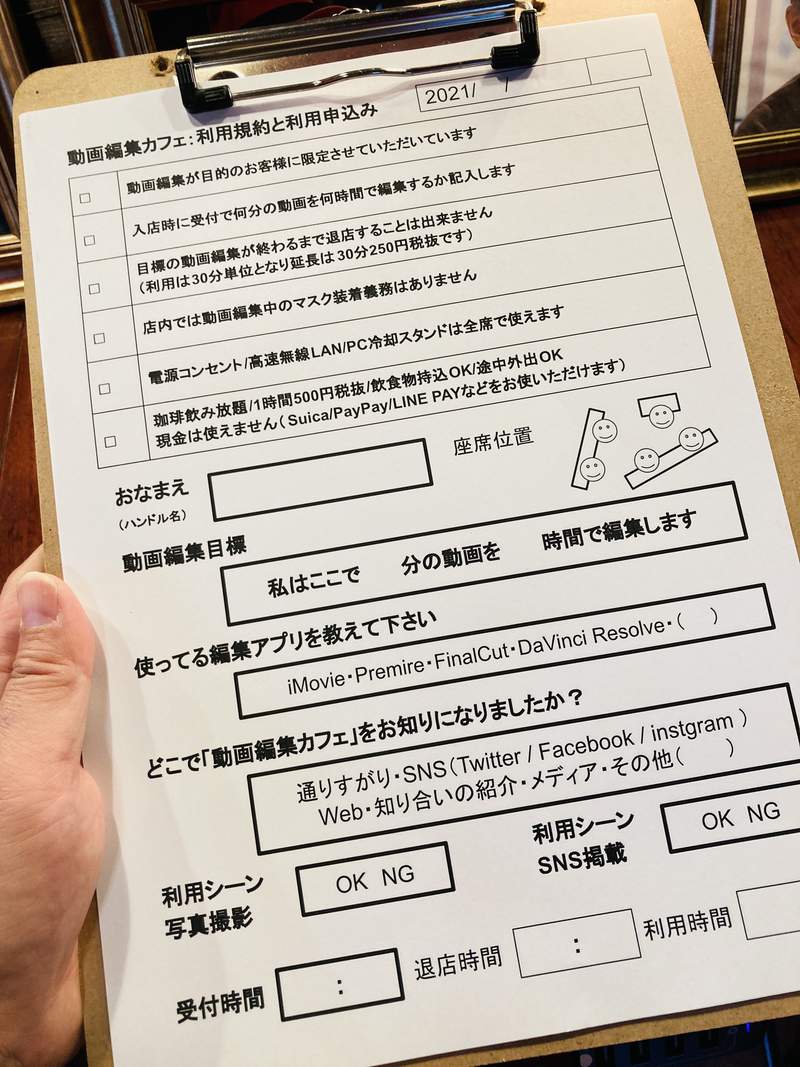 2021/ /
動画編集カフェ：利用規約と利用申込み
□ 動画編集が目的のお客様に限定させていただいています
□ 入店時に受付で何分の動画を何時間で編集するか記入します
□ 目標の動画編集が終わるまで退店することは出来ません
（利用は30分単位となり延長は30分250円税抜です）
□ 店内では動画編集中のマスク装着義務はありません
□ 電源コンセント/高速無線LAN/PC冷却スタンドは全席で使えます
□ 珈琲飲み放題/1時間500円税抜/飲食物持込OK/途中外出OK
現金は使えません（Suica/PayPay/LINE PAYなどをお使いただけます）
おなまえ
（ハンドル名）
座席位置
動画編集目標
私はここで 分の動画を 時間で編集します
使ってる編集アプリを教えて下さい
iMovie・Premire・FinalCut・DaVinci Resolve・（ ）
どこで「動画編集カフェ」をお知りになりましたか？
通りすがり・SNS（Twitter / Facebook / instgram ）
Web・知り合いの紹介・メディア・その他（ ）
利用シーン
写真撮影
OK NG
利用シーン
SNS掲載
OK NG
受付時間 ： 退店時間 ： 利用時間